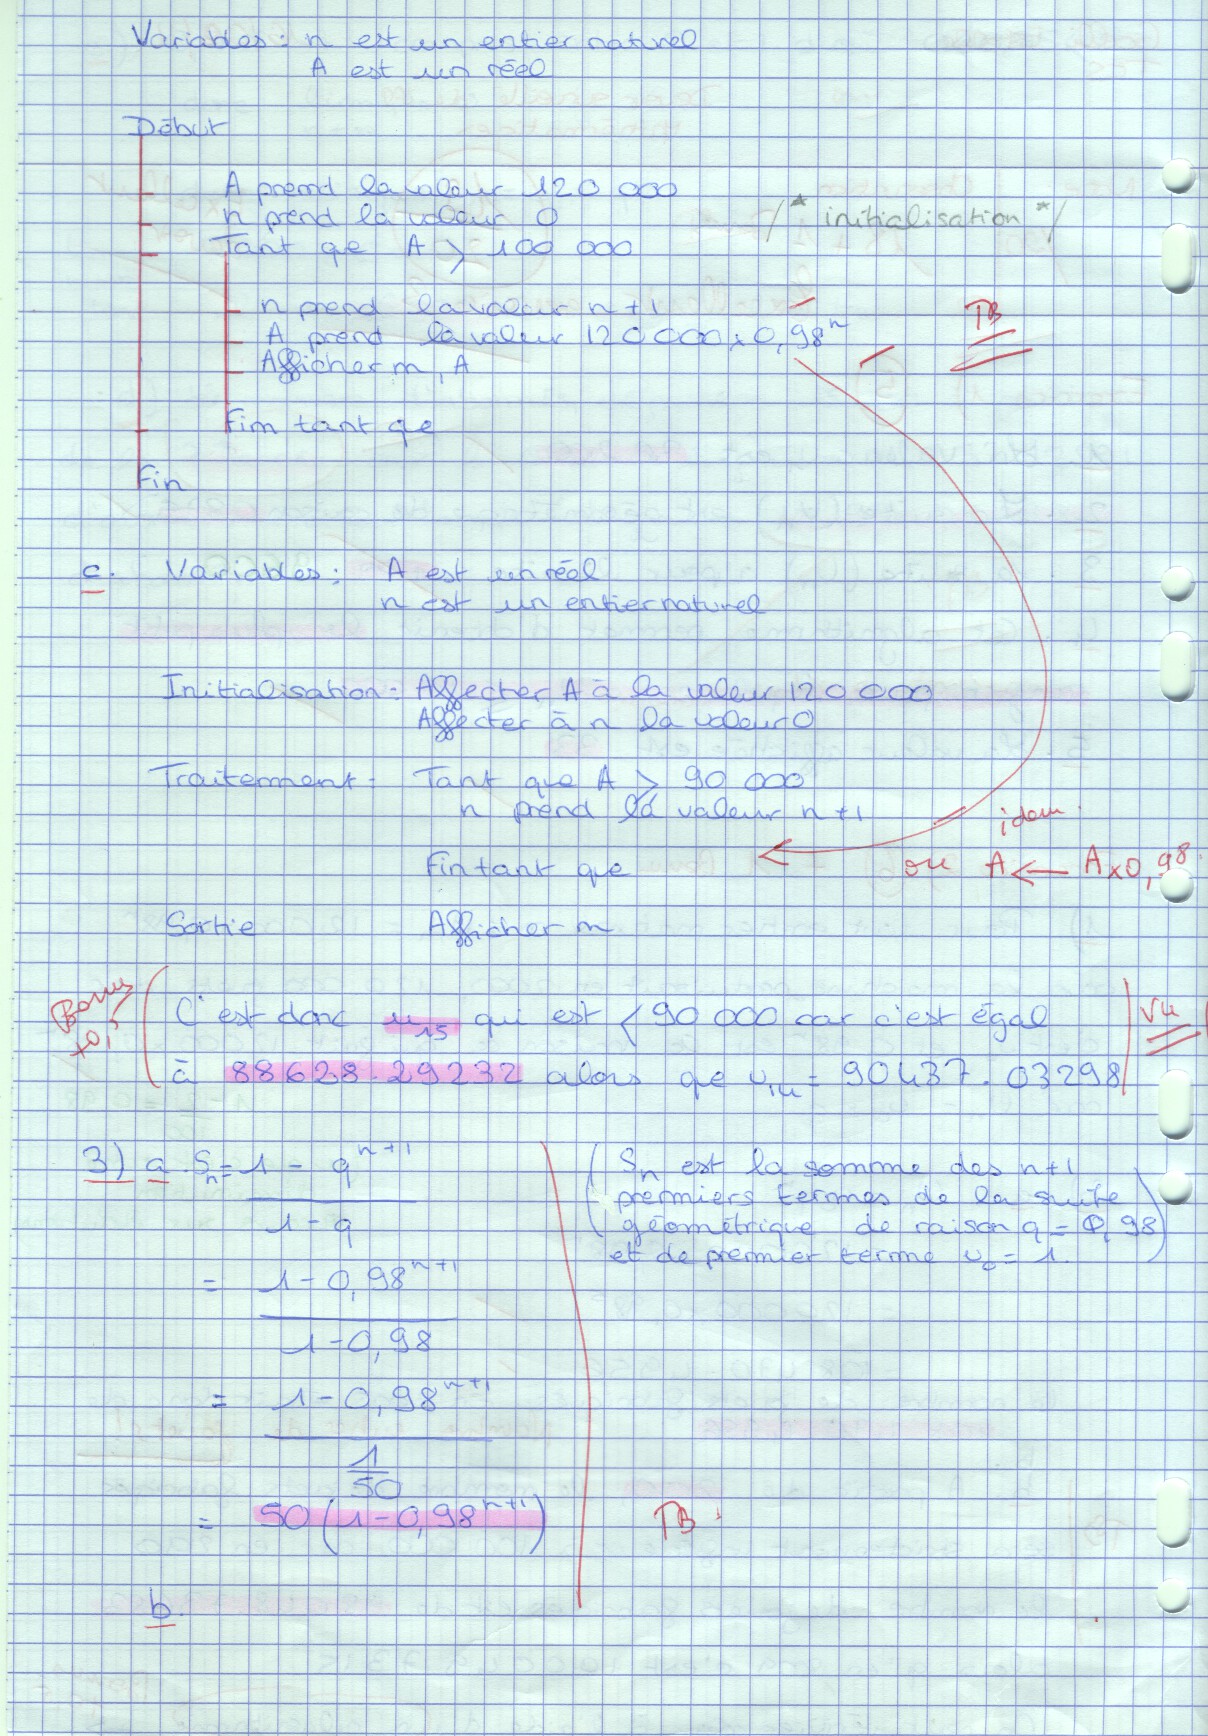 Variables : n est un entier naturel
A est un réel
Début
A prend la valeur 120 000
n prend la valeur 0 /* initialisation */
Tant que A > 100 000
n prend la valeur n+1
A prend la valeur 120 000 x 0,98^n TB
Afficher n, A
Fin tant que
Fin
c. Variables : A est un réel
n est un entier naturel
Initialisation : Affecter A à la valeur 120 000
Affecter à n la valeur 0
Traitement : Tant que A ⩾ 90 000
n prend la valeur n+1
idem.
Fin tant que ou A ← A x 0,98.
Sortie Afficher n
Bonus +0,5
C'est donc u15 qui est < 90 000 car c'est égal Vu
à 88628.29232 alors que u14 = 90437.03298
3) a. Sn = (1 - q^(n+1)) / (1 - q)
(Sn est la somme des n+1
premiers termes de la suite
géométrique de raison q = 0,98
et de premier terme u0 = 1.)
= (1 - 0,98^(n+1)) / (1 - 0,98)
= (1 - 0,98^(n+1)) / (1/50)
= 50 (1 - 0,98^(n+1)) TB.
b.